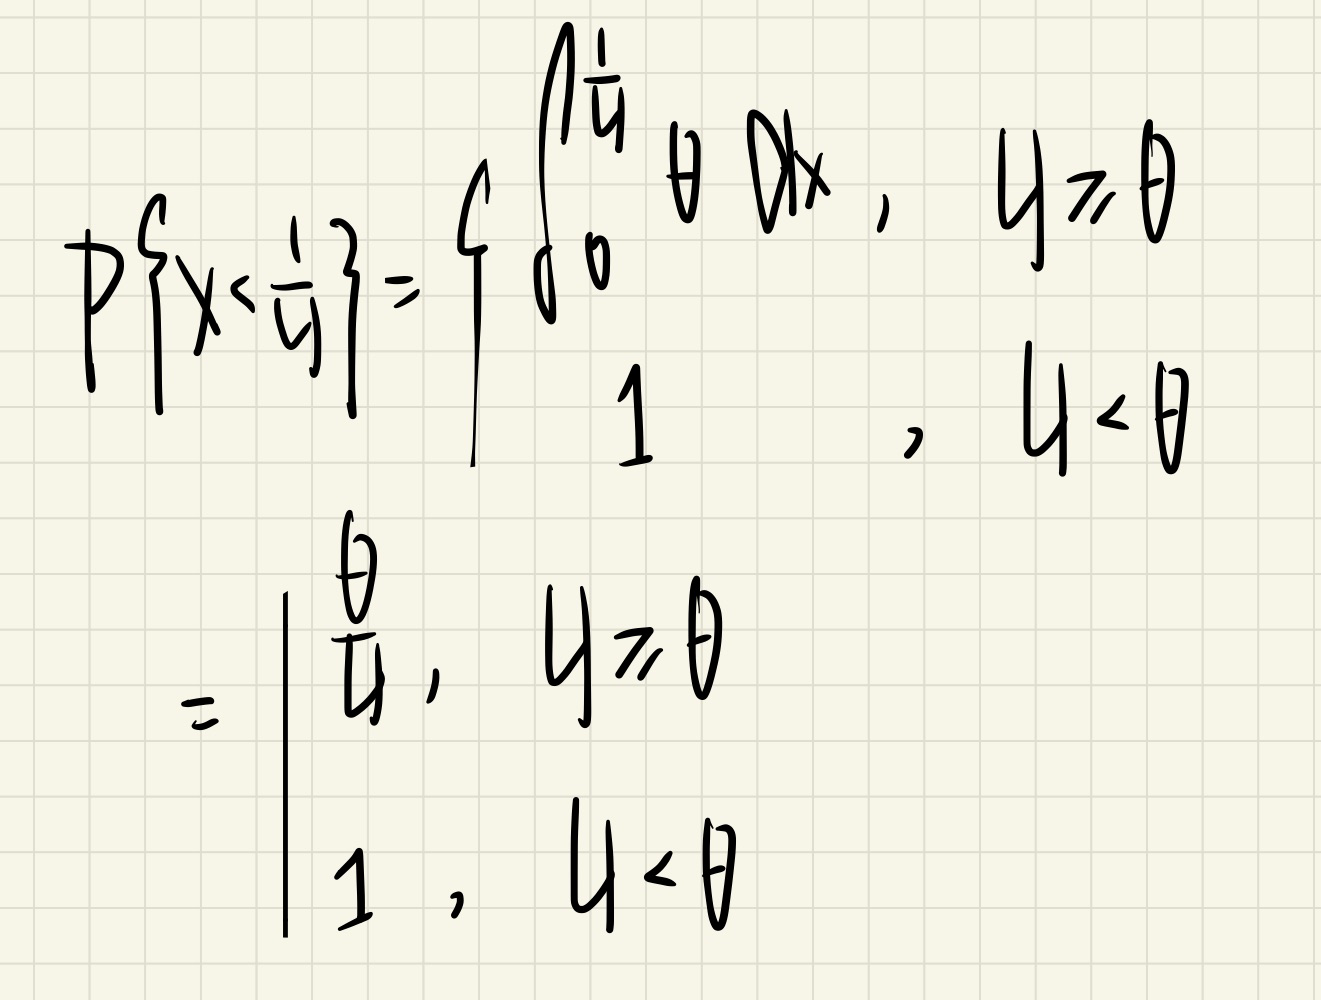 P{X < 1/y} = { ∫₀^{1/y} θ dx , y ⩾ θ
1 , y < θ
= | θ/y , y ⩾ θ
1 , y < θ